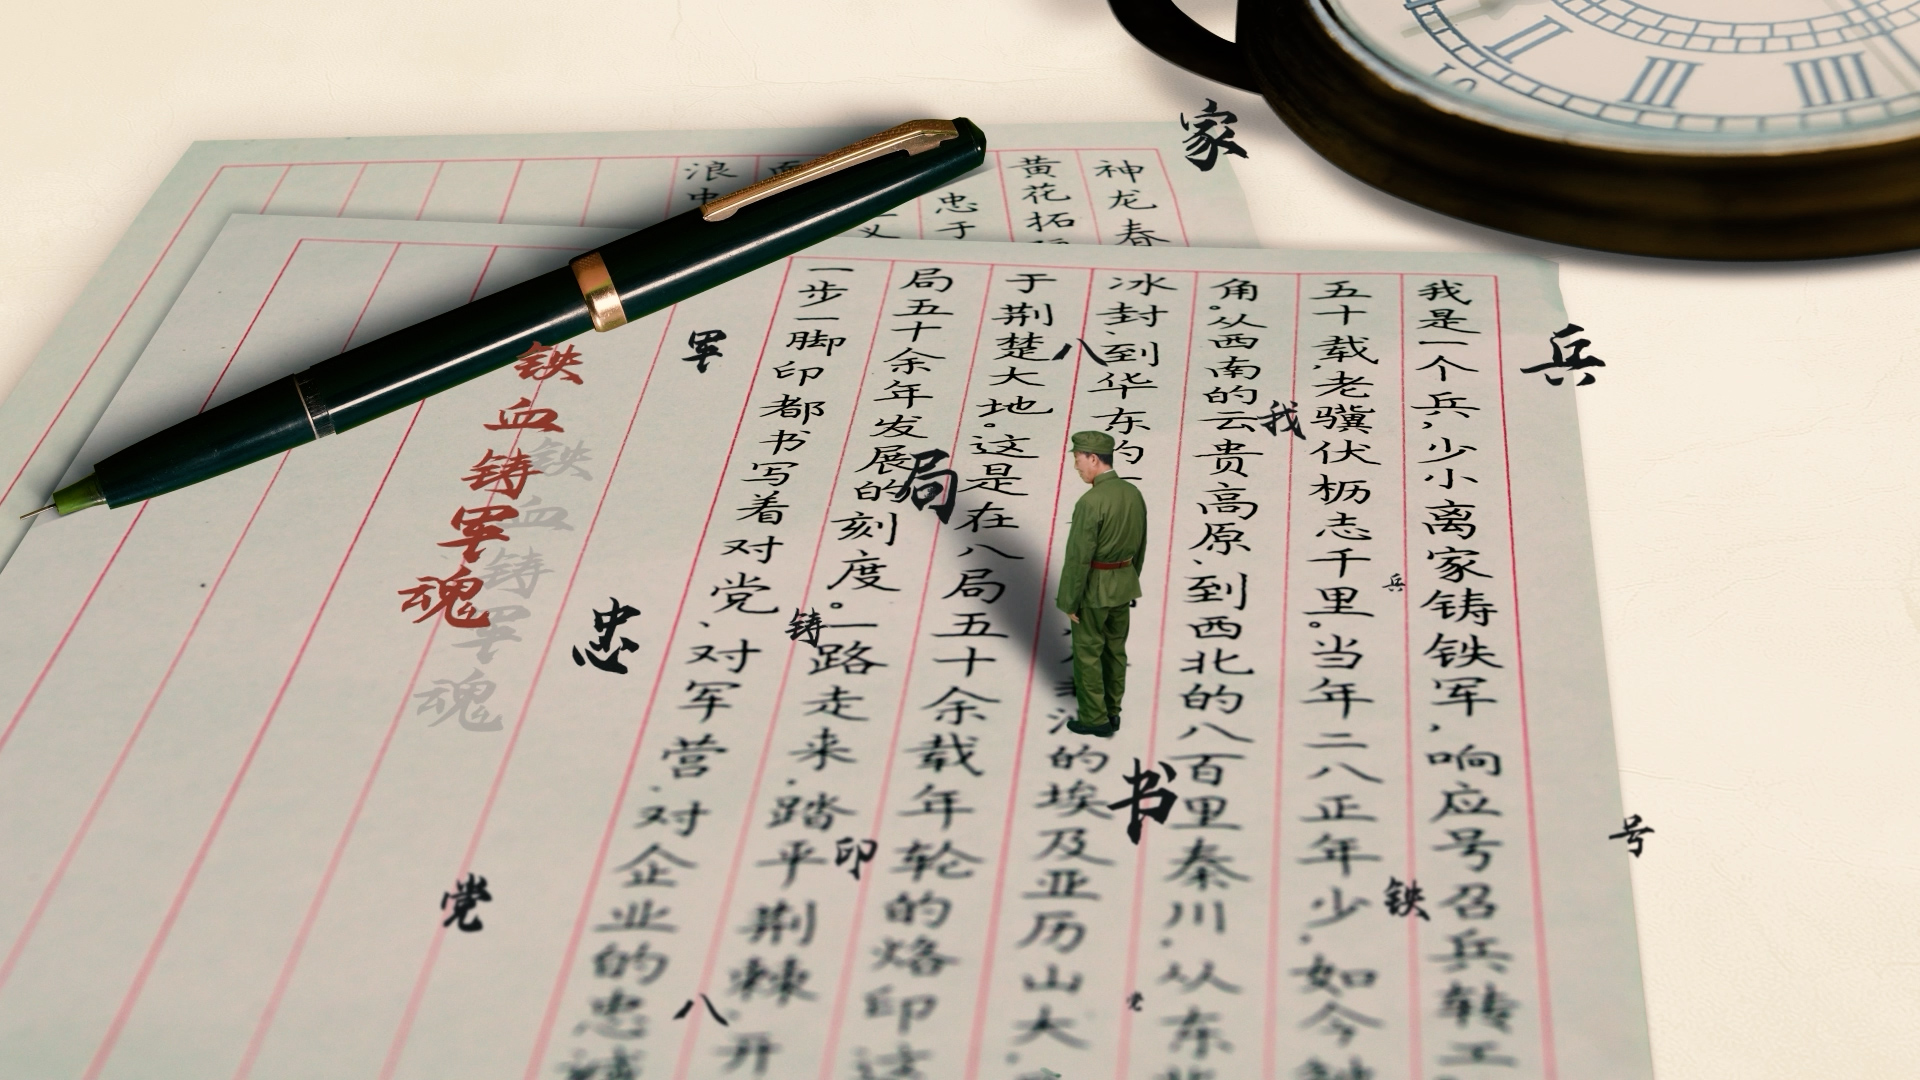 神龙春
黄花拓
忠于
浪
我是一个兵,少小离家铸铁军,响应号召兵转工
五十载,老骥伏枥志千里。当年二八正年少,如今
角。从西南的云贵高原、到西北的八百里秦川,从东
冰封、到华东的
的埃及亚历山大,
于荆楚大地。这是在八局五十余载年轮的烙印这
局五十余年发展的刻度。一路走来,踏平荆棘,开
一步一脚印都书写着对党、对军营、对企业的忠诚
铁血铸军魂
铁血铸军魂
家
兵
军
八
我
局
兵
忠
铸
书
号
印
铁
党
八
党
II
III
IIII